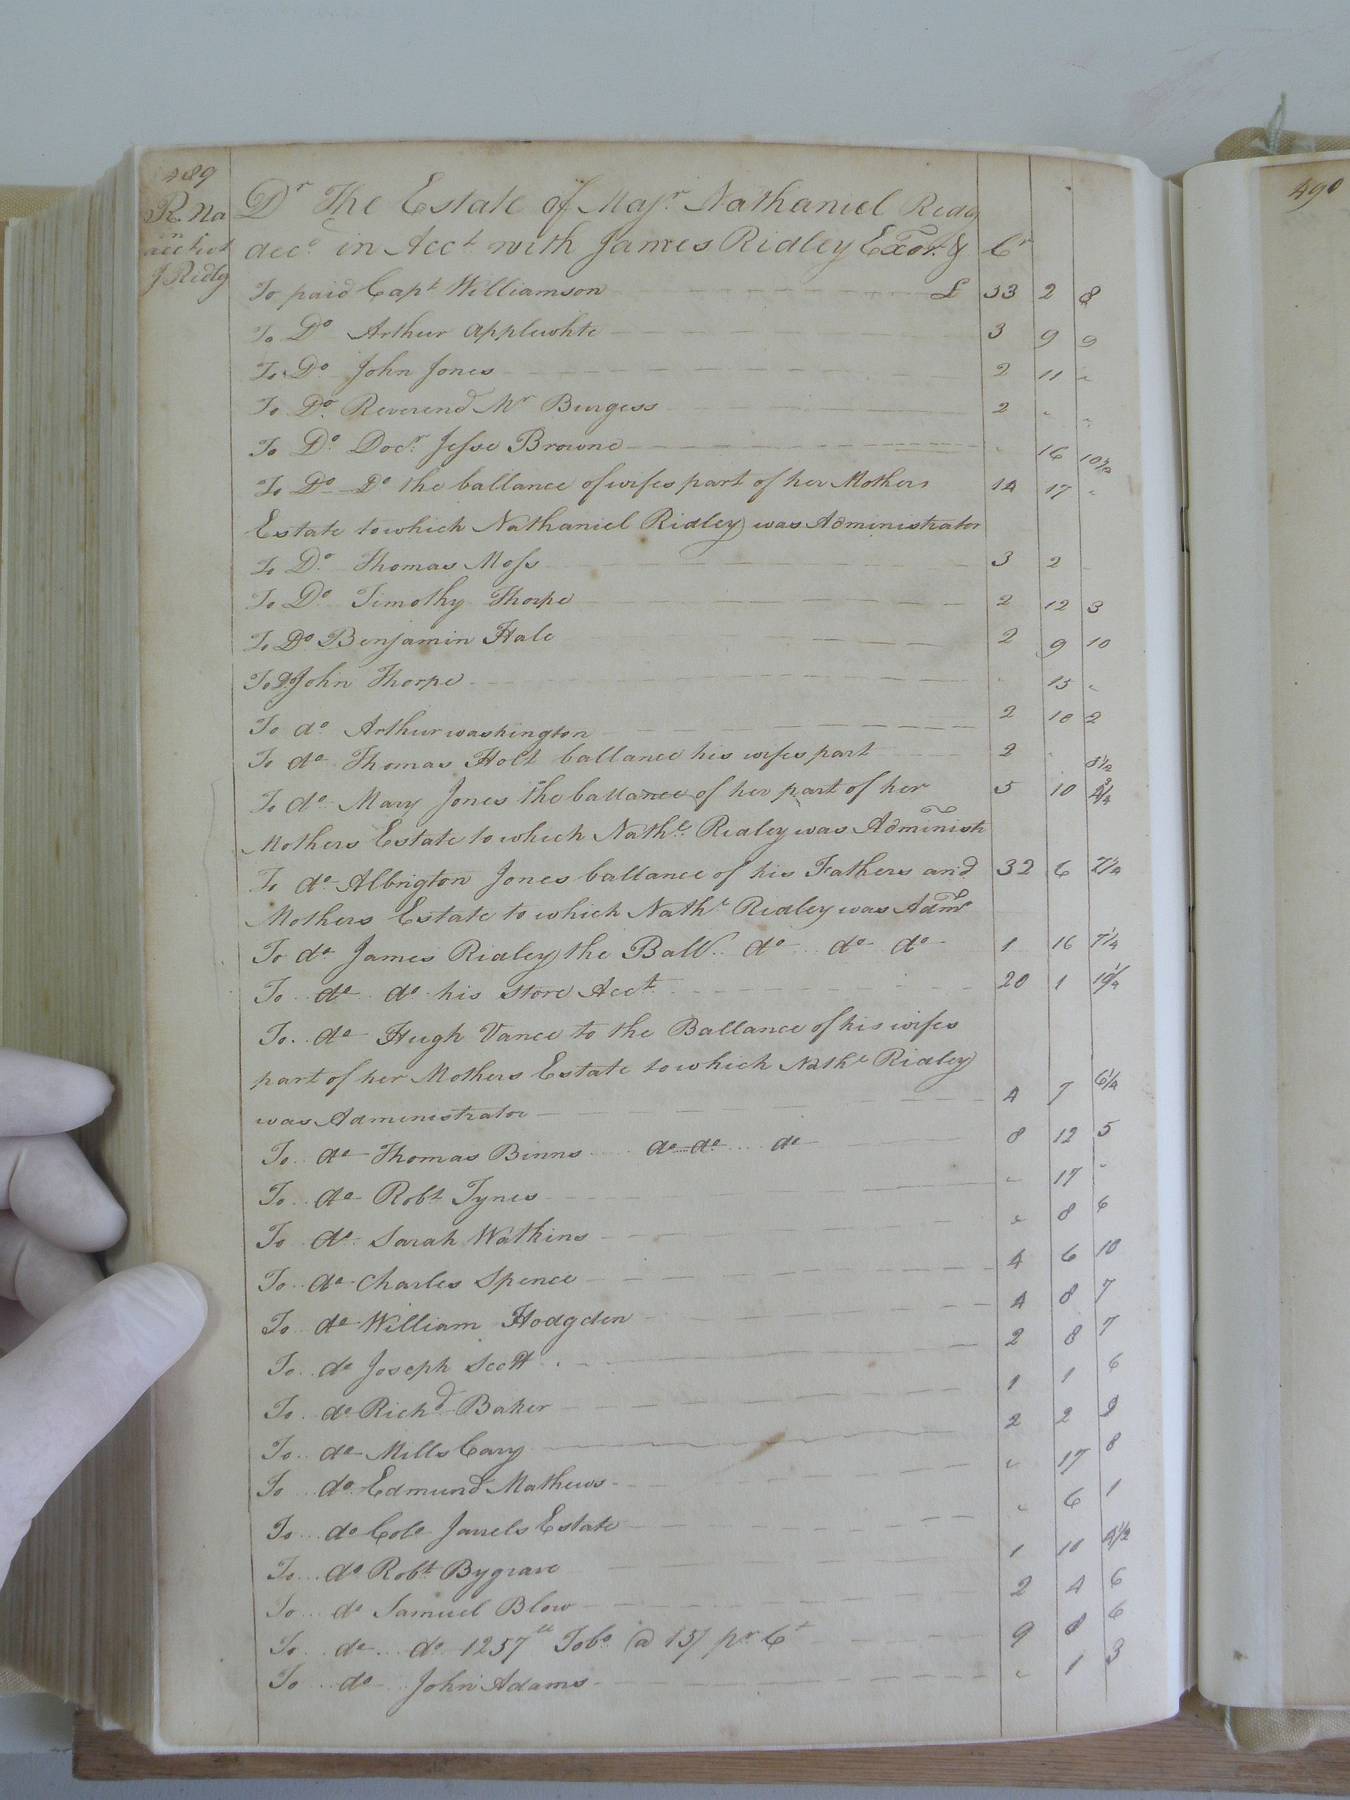 489
R. Na
in
acct
J Ridly
Dr The Estate of Majr. Nathaniel Redg
decd. in Acct with James Ridley Exor. & Cr
To paid Capt Williamson £ 33 2 8
To Do Arthur Applewhte 3 9 9
To Do John Jones 2 11 "
To Do Reverend Mr Burgess 2 " "
To Do Docr. Jesse Browne " 16 10½
To Do Do the ballance of wifes part of her Mothers 14 17 "
Estate to which Nathaniel Ridley was Administrator
To Do Thomas Moss 3 2
To Do Timothy Thorpe 2 12 3
To Do Benjamin Hale 2 9 10
To Do John Thorpe " 15 "
To do Arthur washington 2 10 2
To do Thomas Holt ballance his wifes part 2 " 8½
To do Mary Jones the ballance of her part of her 5 10
Mothers Estate to which Nathl. Ridley was Administr
To do Albrigton Jones ballance of his Fathers and 32 6 7¼
Mothers Estate to which Nathl Ridley was Admr
To do James Ridley the Ball. do do do 1 16 7¼
To do do his store Acct 20 1 10¼
To do Hugh Vance to the Ballance of his wifes
part of her Mothers Estate to which Nathl Ridley
was Administrator 4 7 6¼
To do Thomas Binns do do do 8 12 5
To do Robt Tynes " 17 "
To do Sarah Watkins " 8 6
To do Charles Spence 4 6 10
To do William Hodgden 4 8 7
To do Joseph Scott 2 8 7
To do Richd Baker 1 1 6
To do Mills Cary 2 2
To do Edmund Mathews " 17 8
To do Colo Jarrels Estate " 6 1
To do Robt Bygrave 1 10 4½
To do Samuel Blow 2 4 6
To do do 1257 lb Tobo @ 15/ pr Ct 9 8 6
To do John Adams " 1 3
490